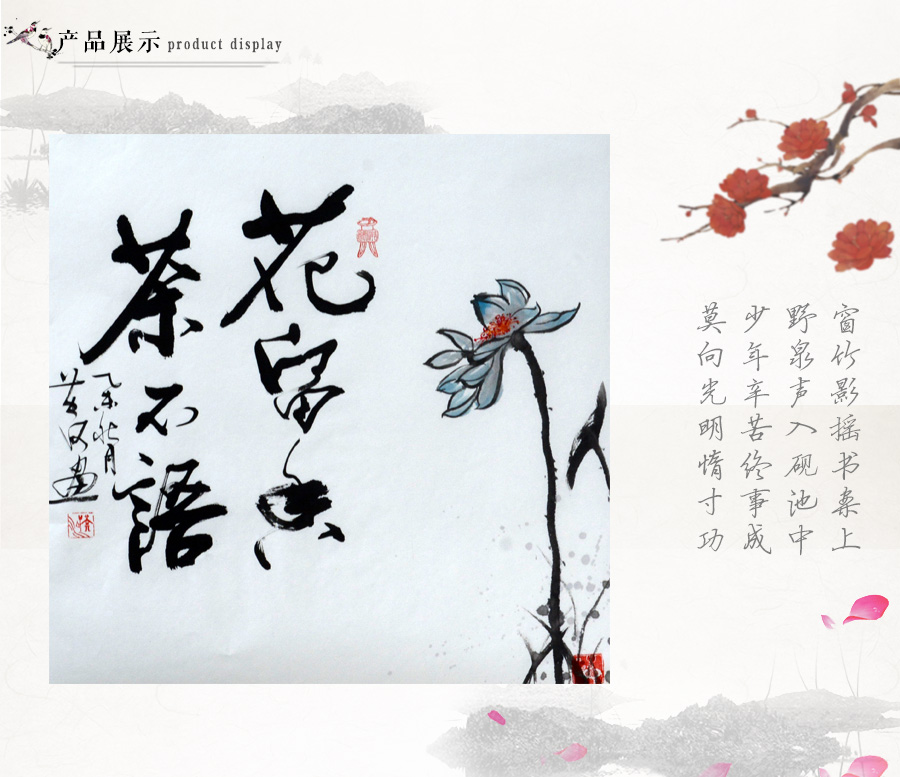 产品展示 product display
花留香
茶不语
乙未秋月
窗竹影摇书案上
野泉声入砚池中
少年辛苦终事成
莫向光明惰寸功